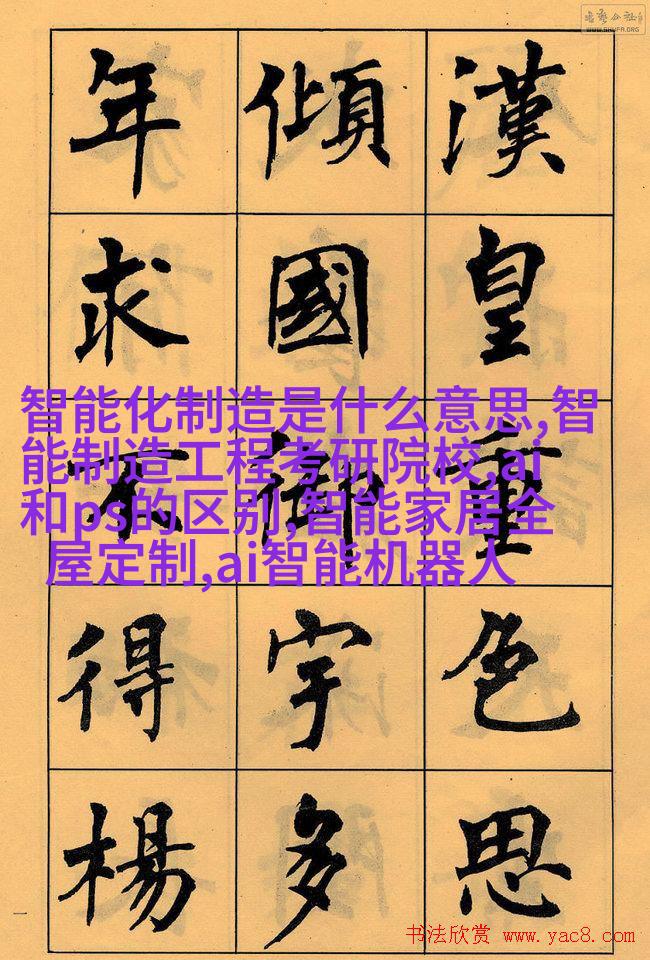 漢皇重色思
傾國御宇多
年求不得楊
智能化制造是什么意思,智
能制造工程考研院校,ai
和ps的区别,智能家居全
屋定制,ai智能机器人
WWW.SHUFA.ORG
书法欣赏 www.yac8.com
一